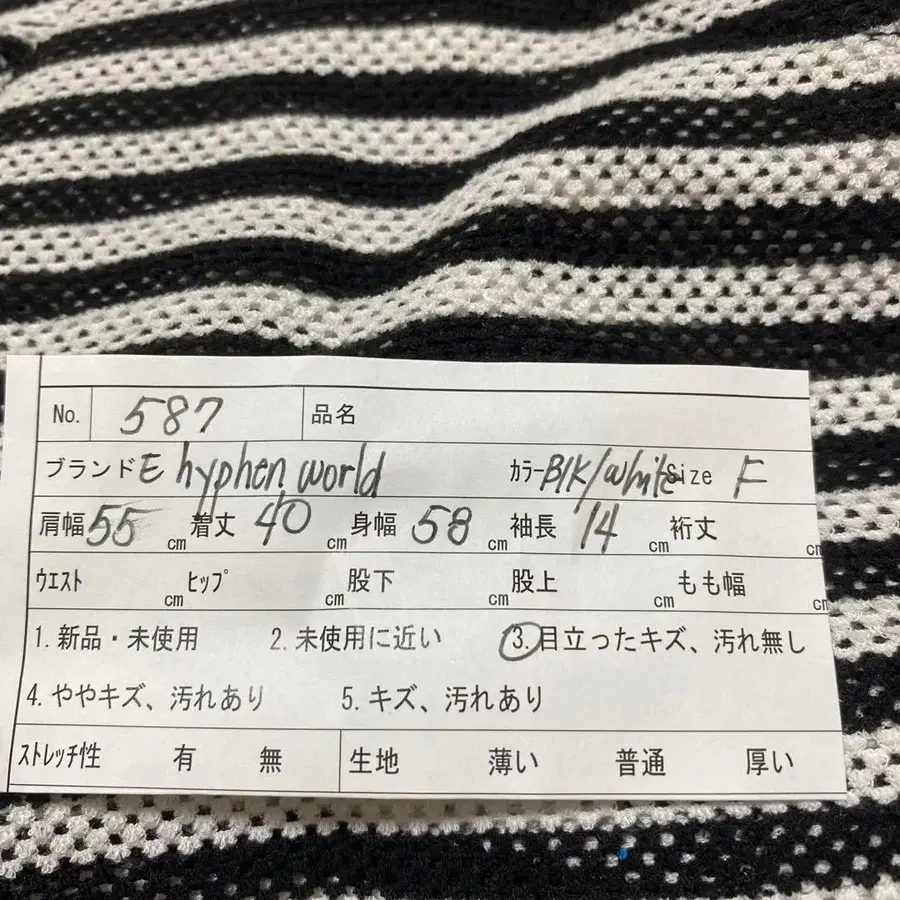 No. 587 品名
ブランド E hyphen world カラー Blk/White Size F
肩幅 55 cm 着丈 40 cm 身幅 58 cm 袖長 14 cm 裄丈 cm
ウエスト cm ヒップ cm 股下 cm 股上 cm もも幅 cm
1. 新品・未使用 2. 未使用に近い 3. 目立ったキズ、汚れ無し
4. ややキズ、汚れあり 5. キズ、汚れあり
ストレッチ性 有 無 生地 薄い 普通 厚い